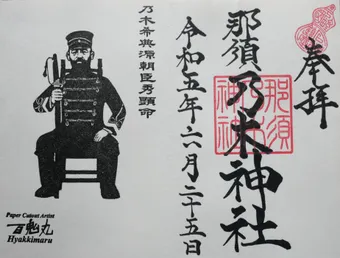 奉拝
那須乃木神社
令和五年六月二十五日
乃木希典源朝臣秀顕命
那須
Paper Cutout Artist
百鬼丸
Hyakkimaru